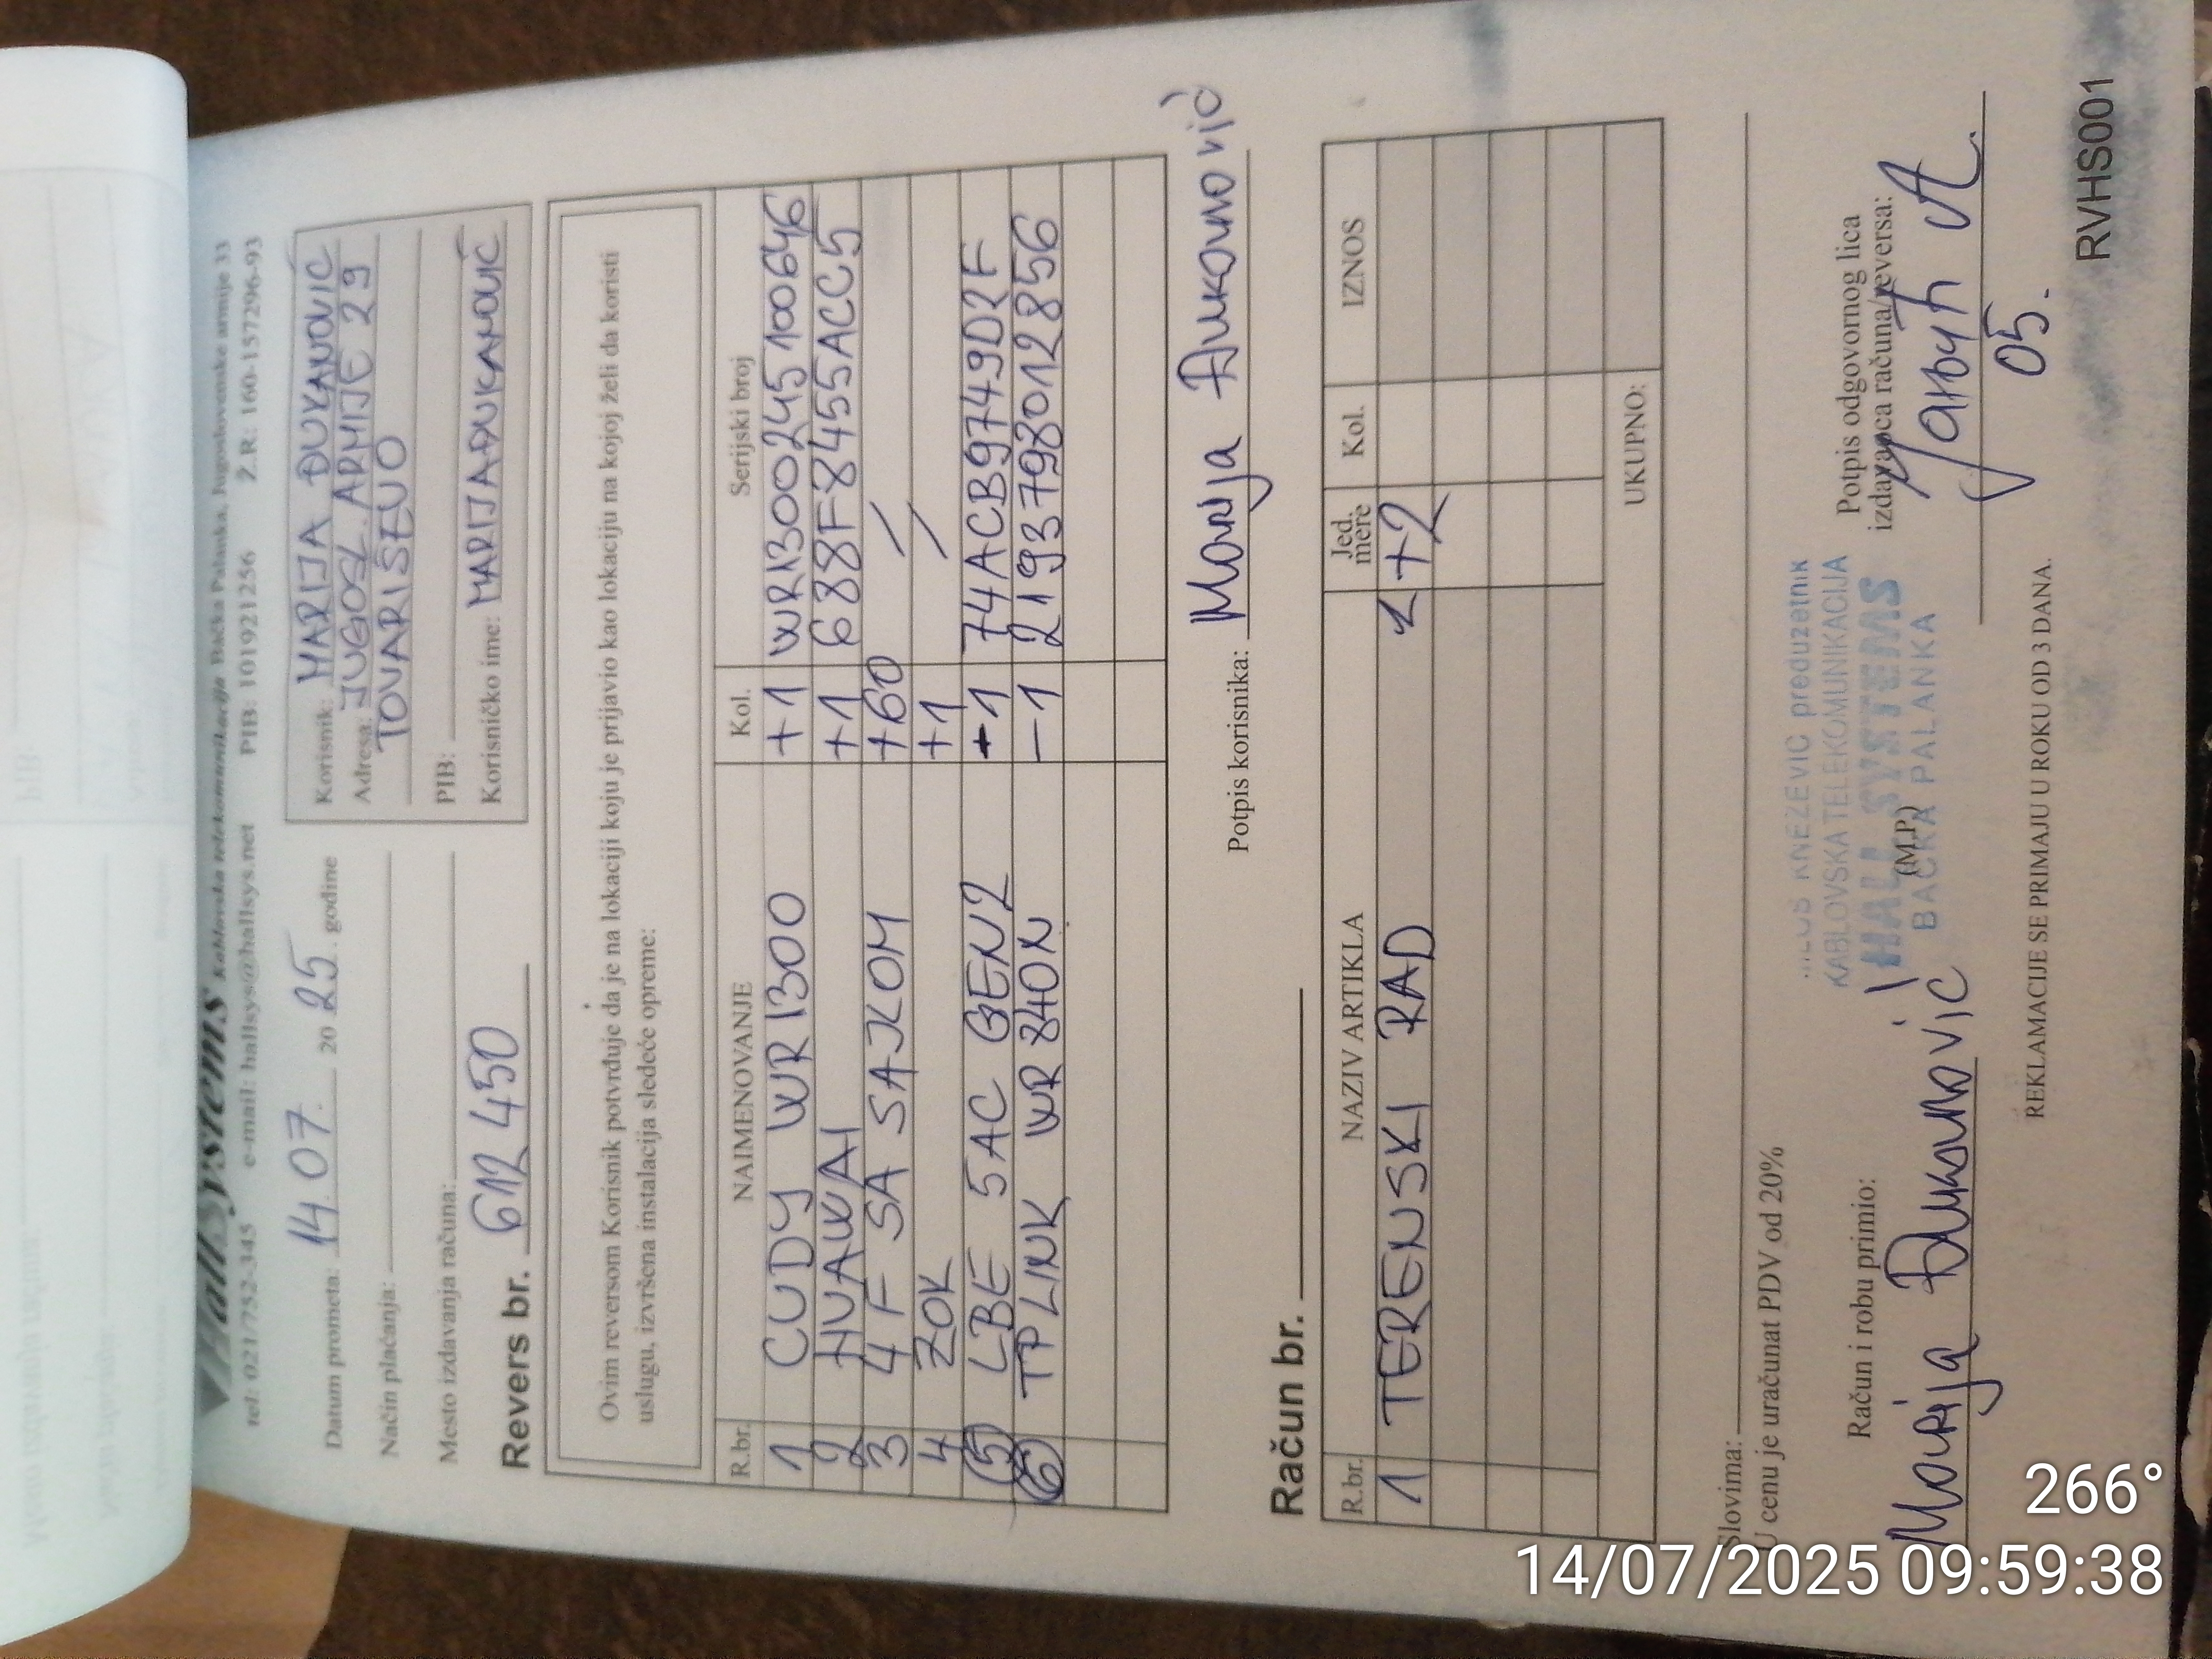 HallSystems Kablovska telekomunikacija Bačka Palanka, Jugoslovenske armije 33
tel: 021/752-345 e-mail: hallsys@hallsys.net PIB: 101921256 Ž.R: 160-157296-93
Datum prometa: 14.07. 20 25. godine
Način plaćanja:
Mesto izdavanja računa:
Revers br. 612 450
Korisnik: MARIJA ĐUKANOVIĆ
Adresa: JUGOSL. ARMIJE 29
TOVARIŠEVO
PIB:
Korisničko ime: MARIJAĐUKANOVIĆ
Ovim reversom Korisnik potvrđuje da je na lokaciji koju je prijavio kao lokaciju na kojoj želi da koristi
uslugu, izvršena instalacija sledeće opreme:
R.br. NAIMENOVANJE Kol. Serijski broj
1 CUDY WR1300 +1 WR1300245100646
2 HUAWAI +1 688F8455ACC5
3 4F SA SAJKOM +60 /
4 ZOK +1 /
5 LBE 5AC GEN2 -1 74ACB9749D2F
6 TPLINK WR840N -1 2193798012856
Potpis korisnika: Marija Đukanović
Račun br.
R.br. NAZIV ARTIKLA Jed. mere Kol. IZNOS
1 TERENSKI RAD 1+2
UKUPNO:
Slovima:
U cenu je uračunat PDV od 20%
Račun i robu primio:
Marija Đukanović
(M.P.)
KNEZEVIC preduzetnik
KABLOVSKA TELEKOMUNIKACIJA
HALL SYSTEMS
BAČKA PALANKA
Potpis odgovornog lica
izdavaoca računa/reversa:
05.
REKLAMACIJE SE PRIMAJU U ROKU OD 3 DANA.
RVHS001
266°
14/07/2025 09:59:38